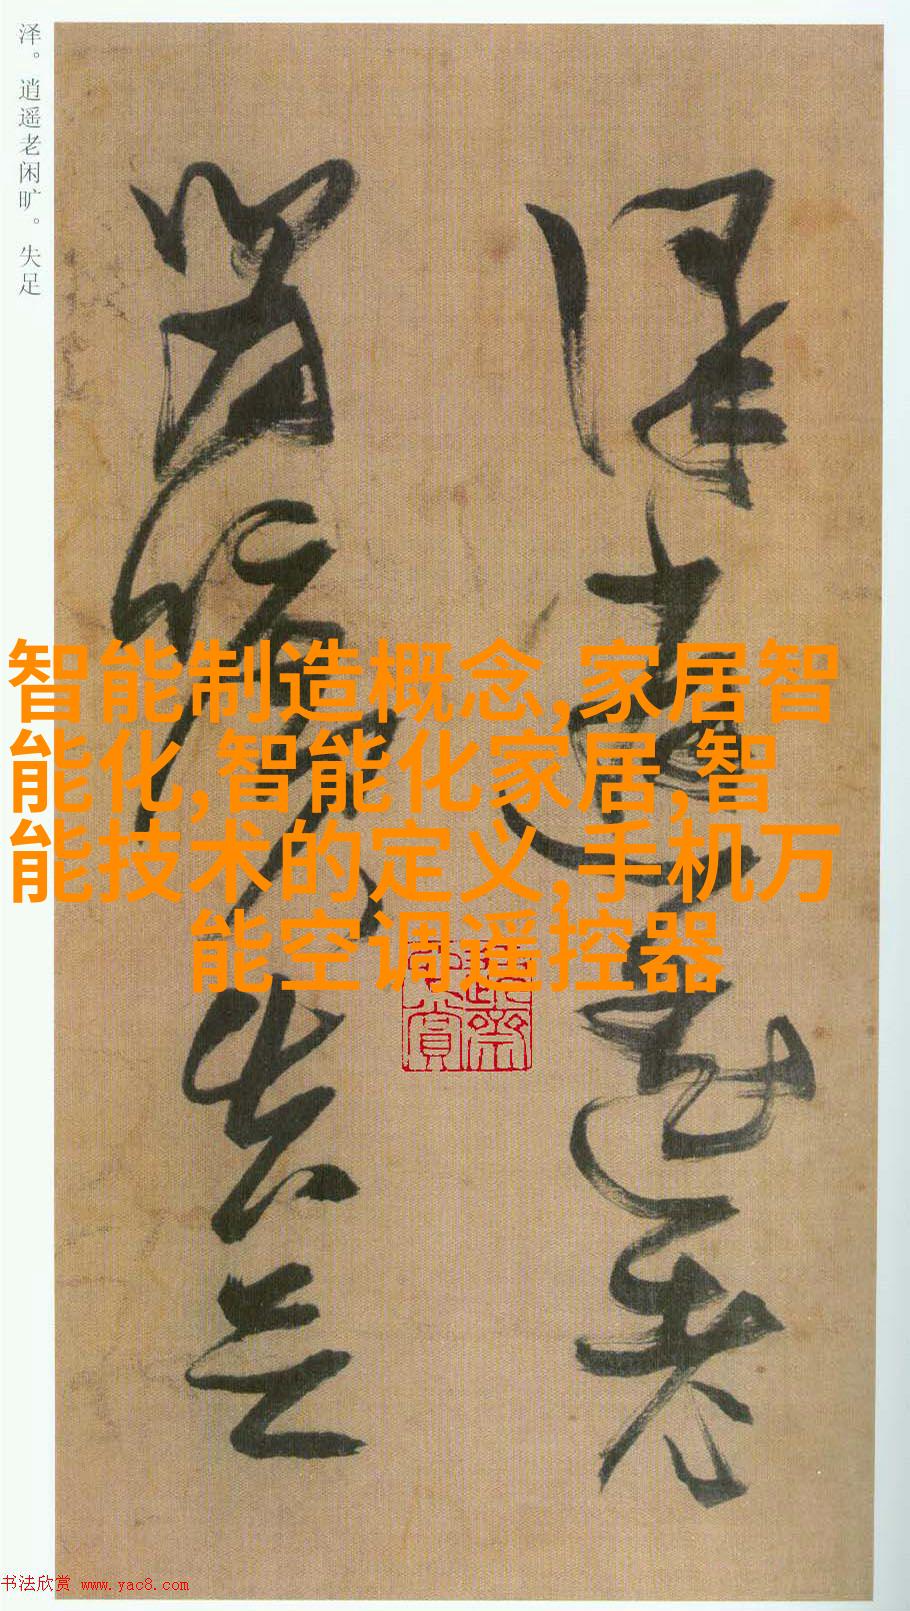 泽。逍遥老闲旷。失足
泽逍遥老
闲旷失足
智能制造概念,家居智
能化,智能化家居,智
能技术的定义,手机万
能空调遥控器
书法欣赏 www.yac8.com